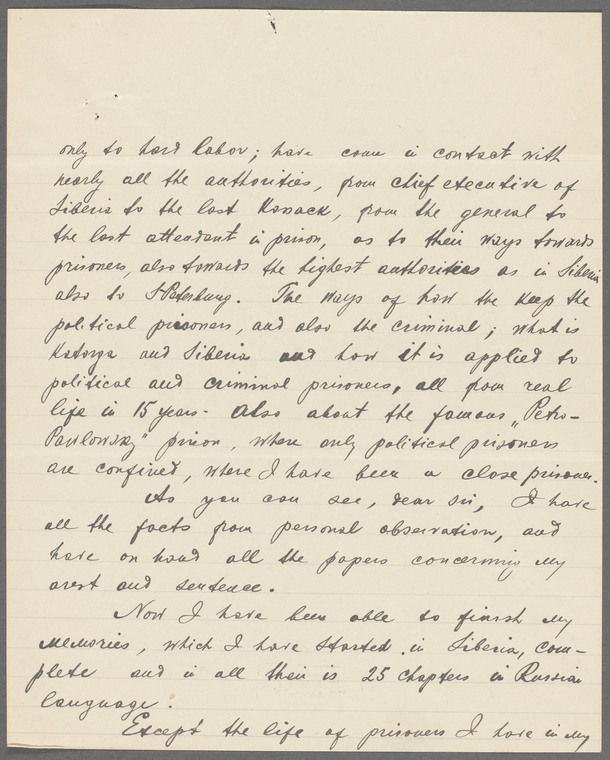 only to hard labor; have come in contact with
nearly all the authorities, from chief executive of
Siberia to the last Kossack, from the general to
the last attendant in prison, as to their ways towards
prisoners, also towards the highest authorities as in Siberia
also to S-Peterburg. The ways of how the keep the
political prisoners, and also the criminal; what is
Katorga and Siberia and how it is applied to
political and criminal prisoners, all from real
life in 15 years. Also about the famous „Petro-
Pawlowsky" prison, where only political prisoners
are confined, where I have been a close prisoner.
As you can see, dear sir, I have
all the facts from personal observation, and
have on hand all the papers concerning my
arest and sentence.
Now I have been able to finish my
memories, which I have started in Siberia, com-
plete and in all their is 25 chapters in Russian
language.
Except the life of prisoners I have in my